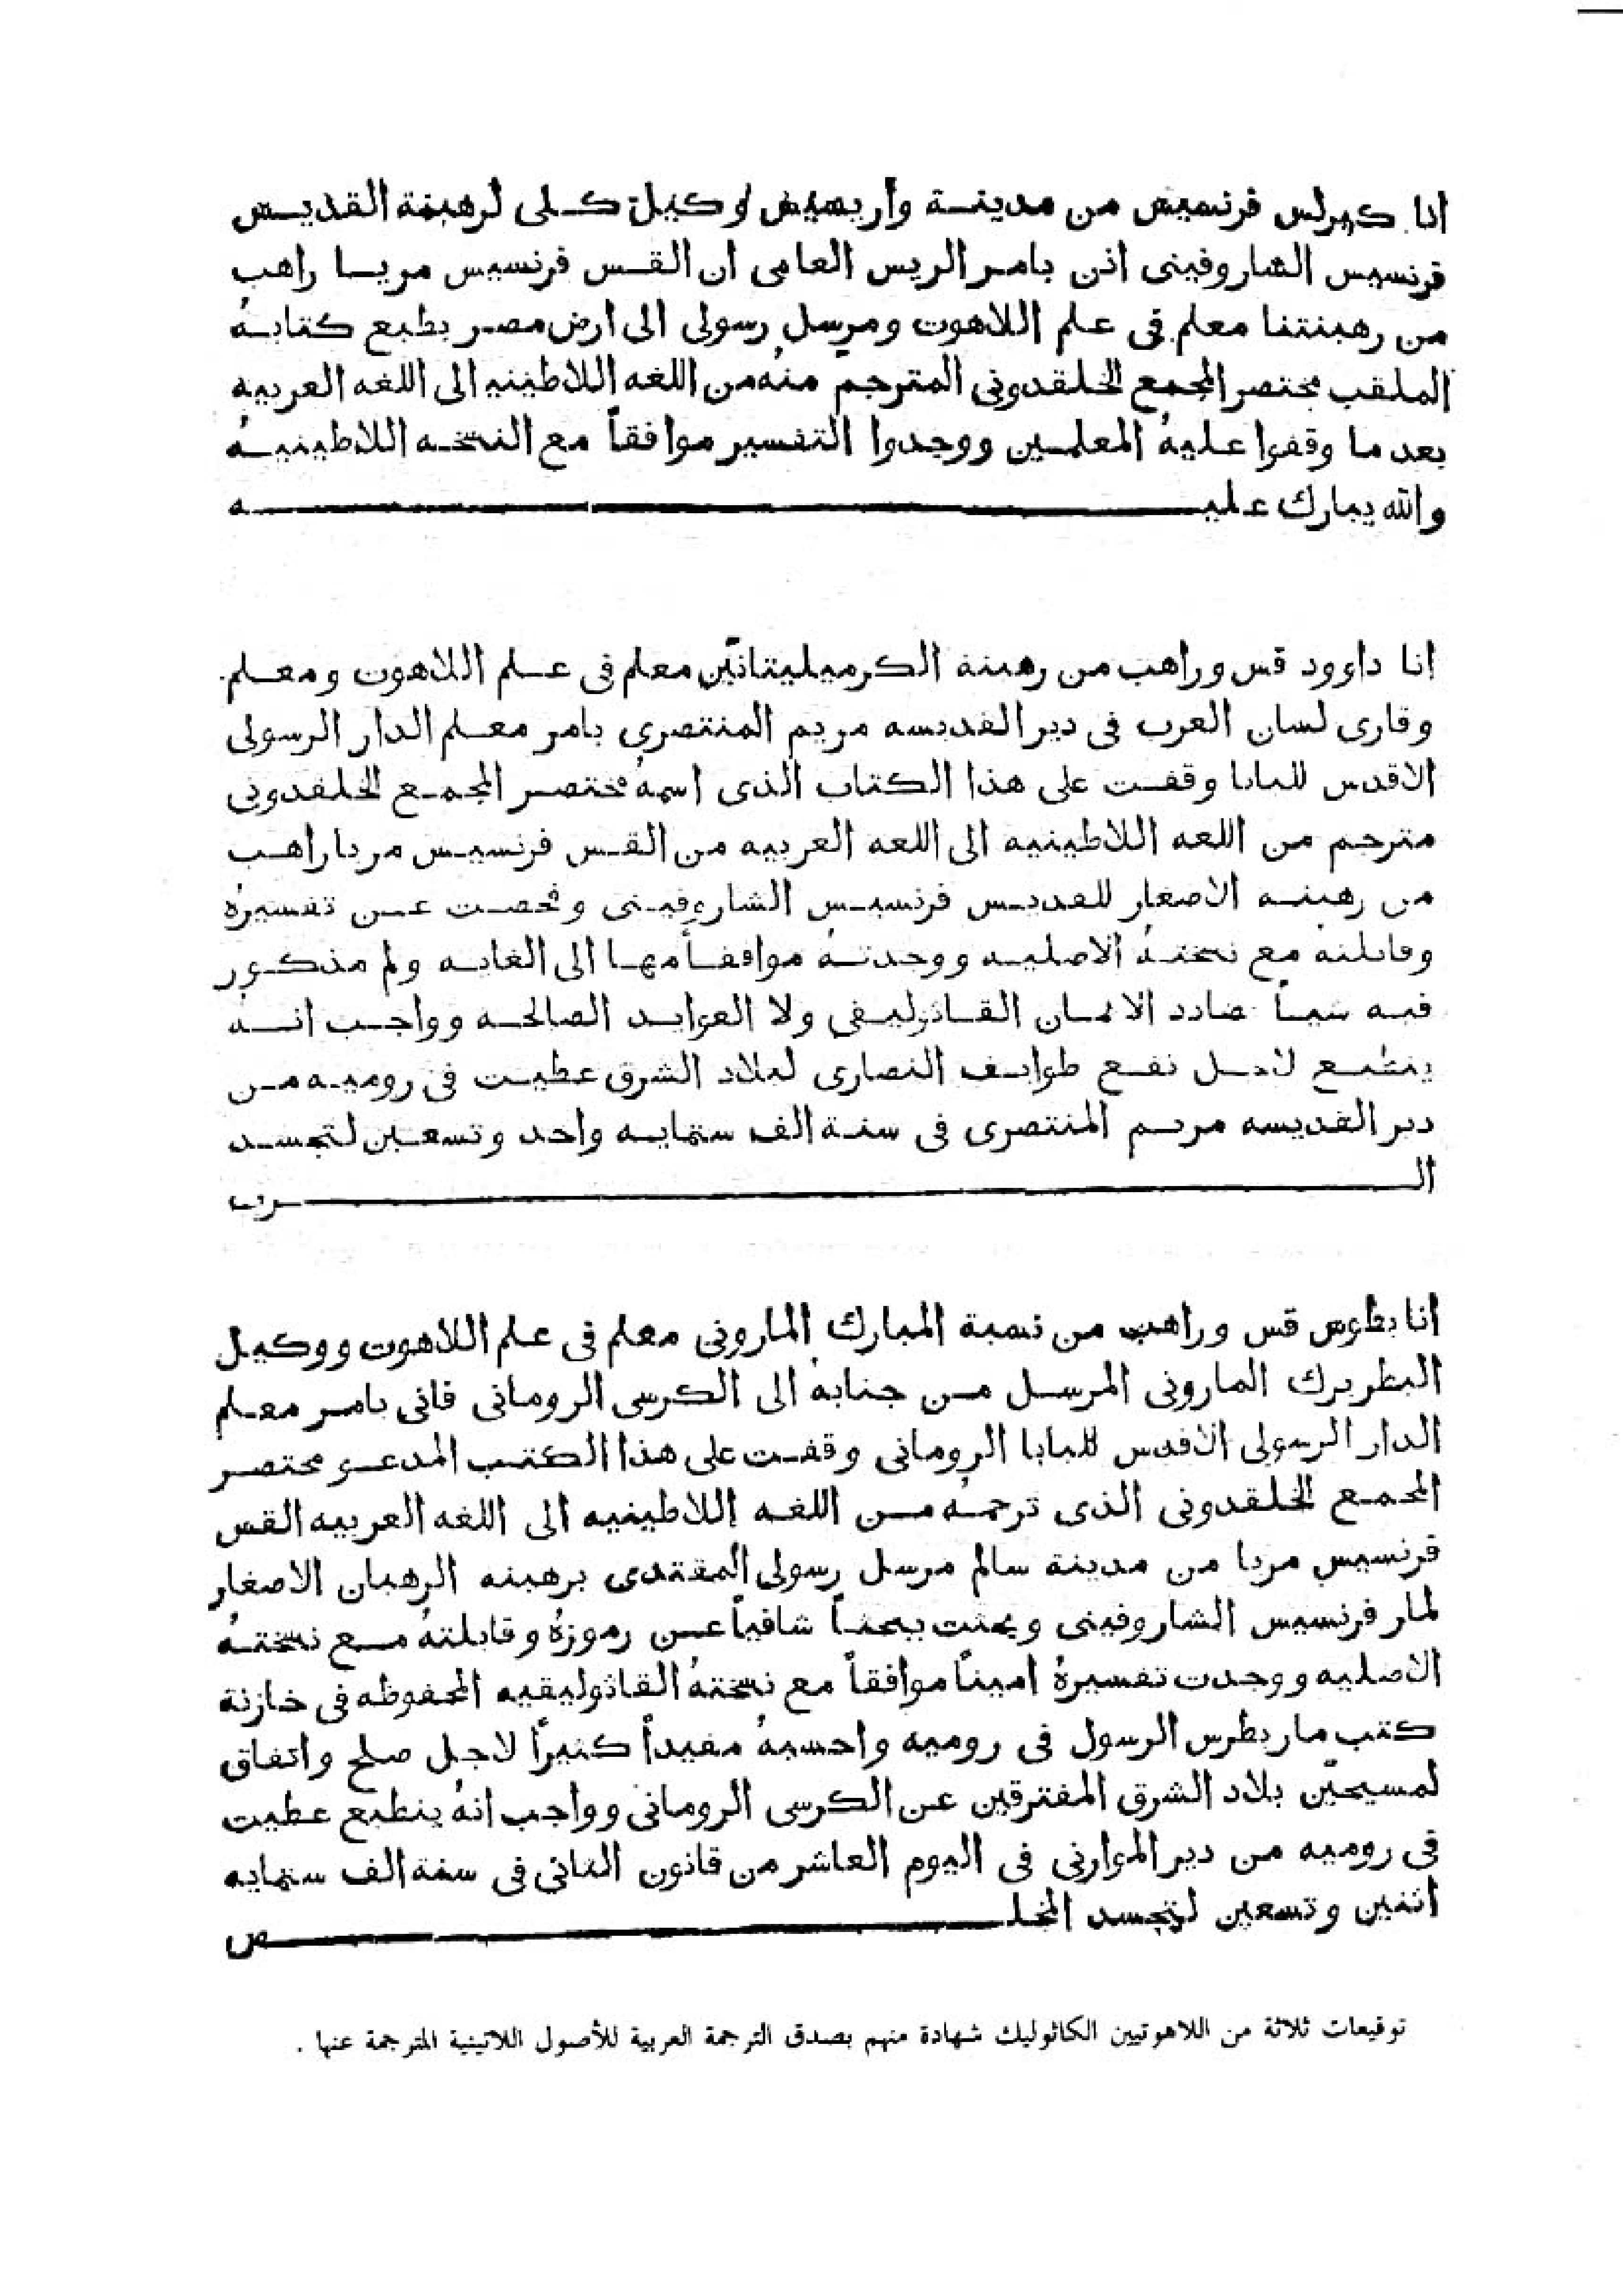 انا كيرلس فرنسيس من مدينة واريسيس وكيل كلى لرهبنة القديس
فرنسيس الشاروفينى اذن بامر الريس العامى ان القس فرنسيس مريا راهب
من رهبنتنا معلم فى علم اللاهوت ومرسل رسولى الى ارض مصر يطبع كتابهُ
الملقب مختصر المجمع الخلقدونى المترجم منهُ من اللغه اللاطينيه الى اللغه العربيه
بعد ما وقفوا عليهُ المعلمين ووجدوا التفسير موافقاً مع النسخه اللاطينيهُ
والله يبارك عليه
انا داوود قس وراهب من رهبنة الكرميليتانيّن معلم فى علم اللاهوت ومعلم
وقارى لسان العرب فى دير القديسه مريم المنتصرى بامر معلم الدار الرسولى
الاقدس للبابا وقفت على هذا الكتاب الذى اسمهُ مختصر المجمع الخلقدونى
مترجم من اللغه اللاطينيه الى اللغه العربيه من القس فرنسيس مريا راهب
من رهبنه الاصغار للقديس فرنسيس الشاروفينى وفحصت عن تفسيرهُ
وقابلتهُ مع نسختهُ الاصليه ووجدتهُ موافقاً معها الى الغايه ولم مذكور
فيه شياً ضادد الايمان القاثوليقى ولا العوايد الصالحه وواجب انه
ينطبع لاجل نفع طوايف النصارى لبلاد الشرق عطيت فى روميه من
دير القديسه مريم المنتصرى فى سنة الف ستمايه واحد وتسعين لتجسد
الرب
انا بطرس قس وراهب من نسبة المبارك المارونى معلم فى علم اللاهوت ووكيل
البطريرك المارونى المرسل من جنابهُ الى الكرسى الرومانى فانى بامر معلم
الدار الرسولى الاقدس للبابا الرومانى وقفت على هذا الكتب المدعو مختصر
المجمع الخلقدونى الذى ترجمهُ من اللغه اللاطينيه الى اللغه العربيه القس
فرنسيس مريا من مدينة سالم مرسل رسولى المقتدى برهبنه الرهبان الاصغار
لمار فرنسيس الشاروفينى وبحثت بحثاً شافياً عن رموزهُ وقابلتهُ مع نسختهُ
الاصليه ووجدت تفسيرهُ اميناً موافقاً مع نسختهُ القاثوليقيه المحفوظه فى خازنة
كتب مار بطرس الرسول فى روميه واحسبهُ مفيداً كثيراً لاجل صلح واتفاق
لمسيحيّن بلاد الشرق المفترقين عن الكرسى الرومانى وواجب انهُ ينطبع عطيت
فى روميه من دير الموارنى فى اليوم العاشر من قانون الثانى فى سنة الف ستمايه
اثنين وتسعين لتجسد المخلص
توقيعات ثلاثة من اللاهوتيين الكاثوليك شهادة منهم بصدق الترجمة العربية للأصول اللاتينية المترجمة عنها .